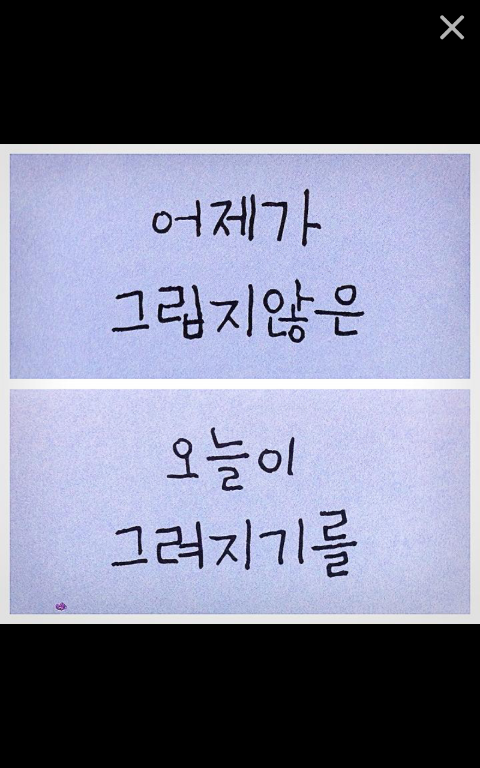 어제가
그립지않은
오늘이
그려지기를